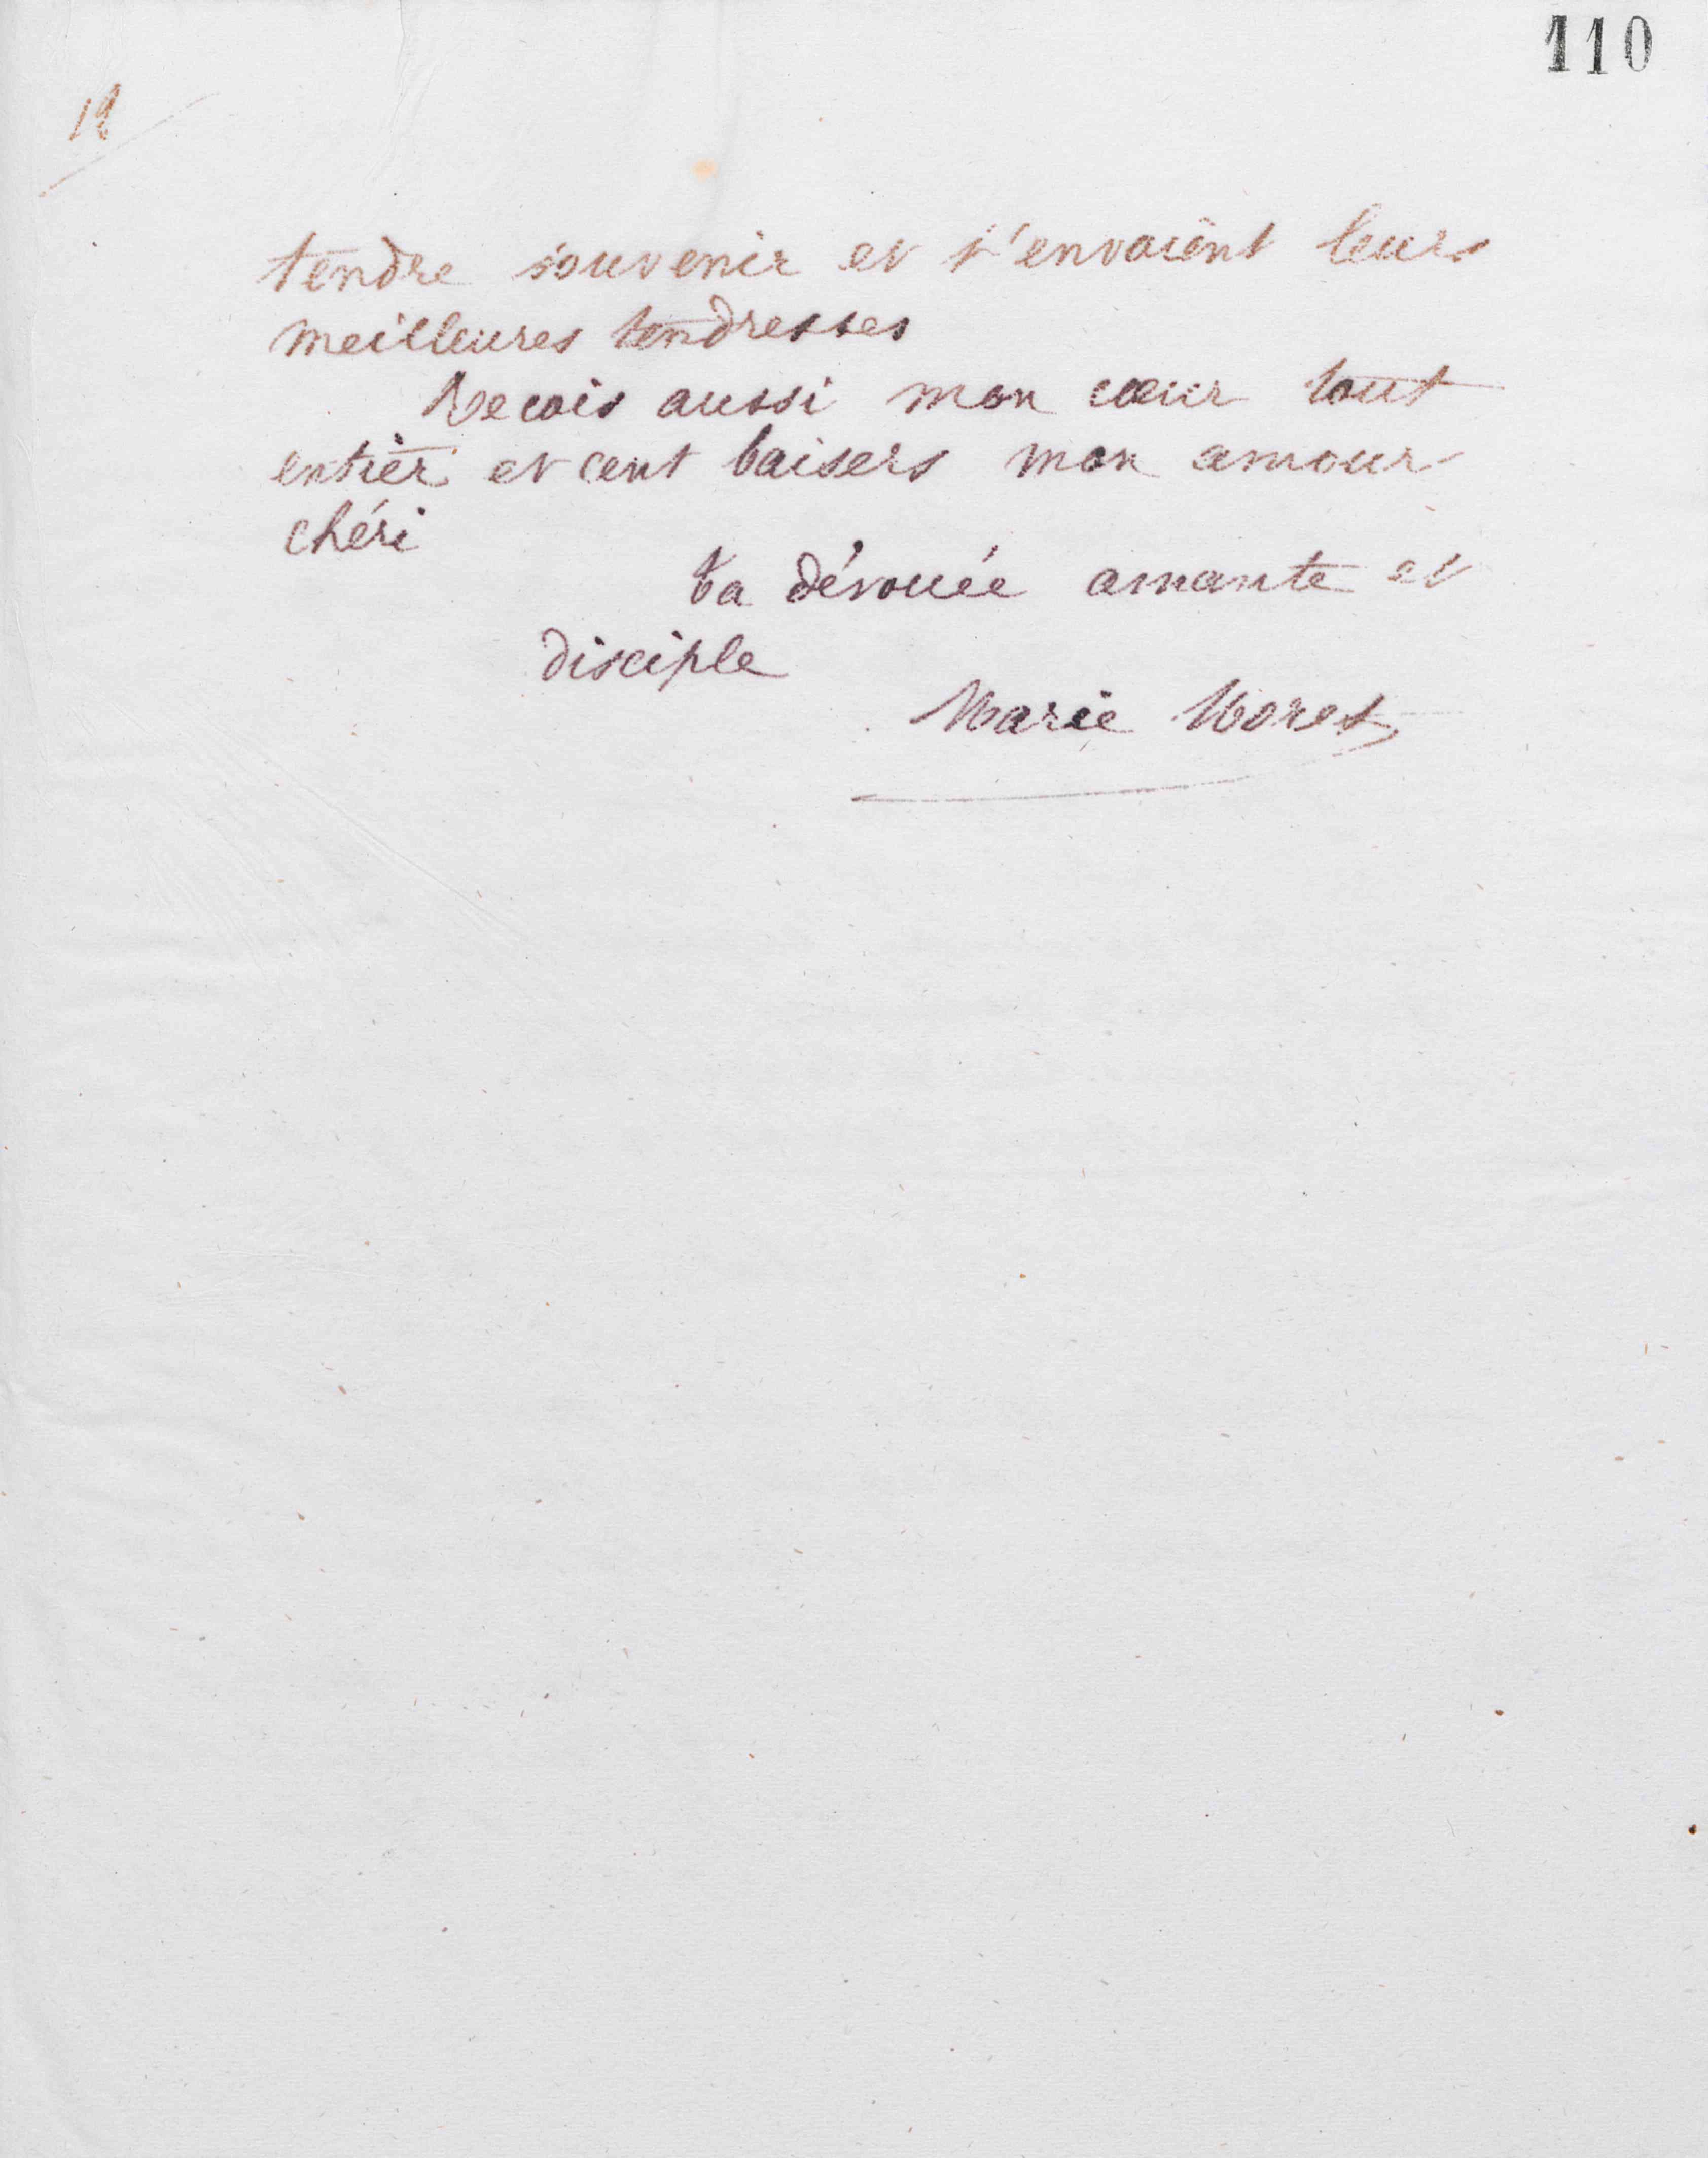 110
12
tendre souvenir et t'envoient leurs
meilleures tendresses
Recois aussi mon cœur tout
entier et cent baisers mon amour
chéri
ta dévouée amante et
disciple
Marie Moret